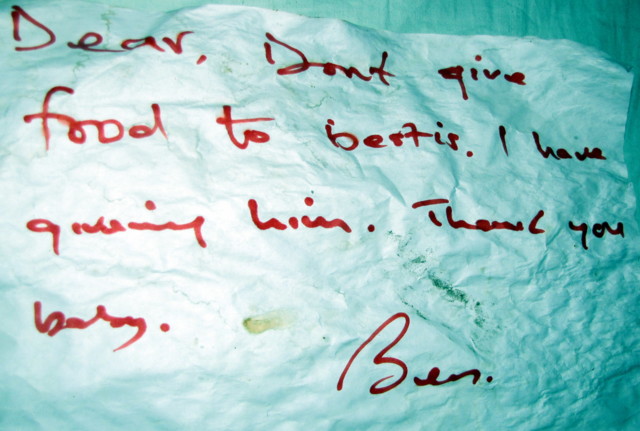 Dear, Dont give
food to bestis. I have
giving him. Thank you
baby.
Ben.